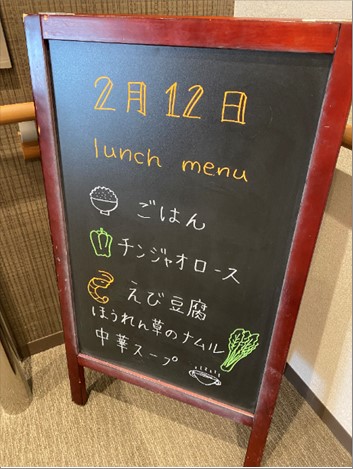 2月12日
lunch menu
ごはん
チンジャオロース
えび豆腐
ほうれん草のナムル
中華スープ